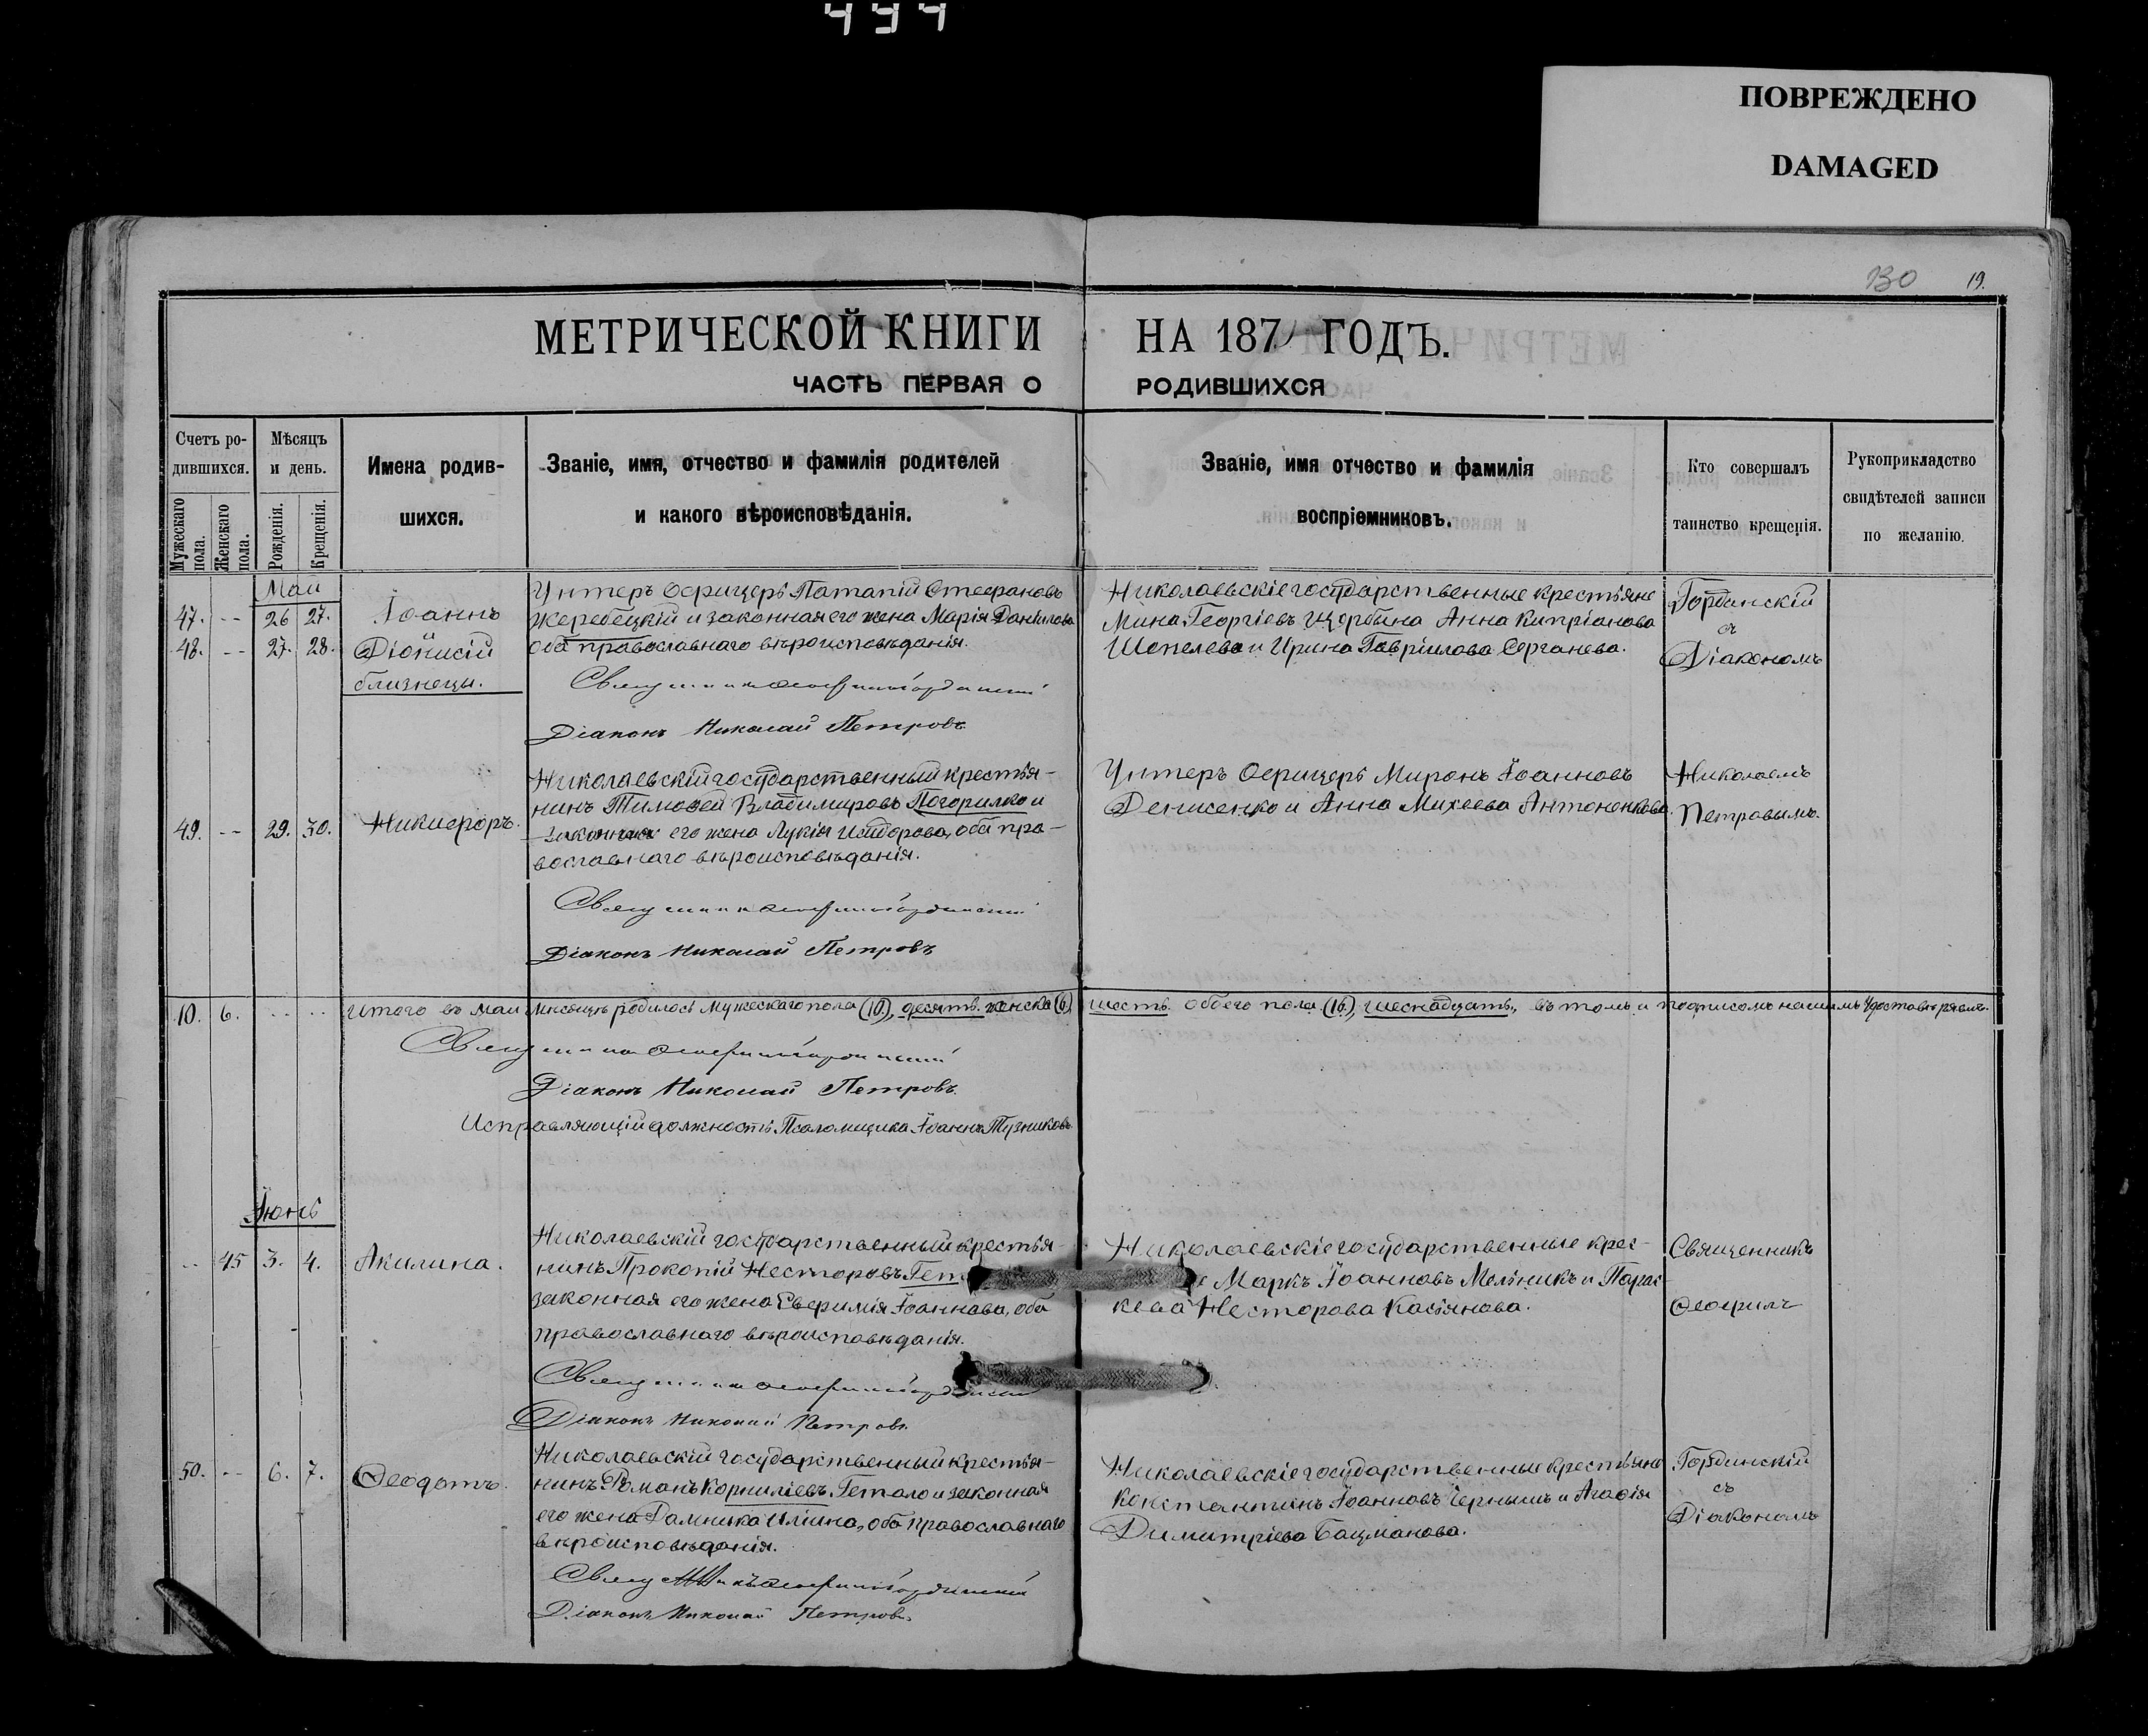 494
ПОВРЕЖДЕНО
DAMAGED
130 19.
МЕТРИЧЕСКОЙ КНИГИ НА 187 ГОДЪ.
ЧАСТЬ ПЕРВАЯ О РОДИВШИХСЯ
Счетъ родившихся.
Мужескаго пола.
Женскаго пола.
Мѣсяцъ и день.
Рожденія.
Крещенія.
Имена родив-
шихся.
Званіе, имя, отчество и фамилія родителей
и какого вѣроисповѣданія.
Званіе, имя отчество и фамилія
воспріемниковъ.
Кто совершалъ
таинство крещенія.
Рукоприкладство
свидѣтелей записи
по желанію.
Маи
47. -- 26 27. Іоаннъ
48. -- 27. 28. Діонисій
близнецы.
Унтеръ Офицеръ Патапій Стефановъ
Жеребецкій и законная его жена Марія Даніилова
оба православнаго вѣроисповѣданія.
Священникъ Ѳеофилъ Гординскій
Діаконъ Николай Петровъ
Николаевскіе государственные крестьяне
Мина Георгіевъ Щербина Анна Кипріанова
Шепелева и Ирина Гавріилова Серганева.
Гординскій
съ
Діакономъ
49. -- 29. 30. Никифоръ.
Николаевскій государственный крестья-
нинъ Тимофей Владимировъ Погорилко и
законная его жена Лукія Исидорова, оба пра-
вославнаго вѣроисповѣданія.
Священникъ Ѳеофилъ Гординскій
Діаконъ Николай Петровъ
Унтеръ Офицеръ Миронъ Іоанновъ
Денисенко и Анна Михеева Антоненкова.
Николаемъ
Петровымъ.
10. 6. .. .. Итого въ Маи Мисяцѣ родилось Мужескаго пола (10.), десять. женска (6.) шесть. обоего пола (16.), шеснадцать, въ томъ и подписомъ нашимъ Удостовѣряемъ.
Священникъ Ѳеофилъ Гординскій
Діаконъ Николай Петровъ.
Исправляющій должность Псаломщика Іоаннъ Тузниковъ.
Іюнь
.. 45 3. 4. Акилина.
Николаевскій государственный крестья-
нинъ Прокопій Несторовъ Гет
законная его жена Евфимія Іоаннова, оба
православнаго вѣроисповѣданія.
Священникъ Ѳеофилъ Гординскій
Діаконъ Николай Петровъ.
Николаевскіе государственные крес-
Маркъ Іоанновъ Мельникъ и Парас-
кева Несторова Касьянова.
Священникъ
Ѳеофилъ
50. -- 6. 7. Ѳеодотъ.
Николаевскій государственный крестья-
нинъ Романъ Корниліевъ Гетало и законная
его жена Домника Ильина, оба православнаго
вѣроисповѣданія.
Священникъ Ѳеофилъ Гординскій
Діаконъ Николай Петровъ.
Николаевскіе государственные крестьяне
Константинъ Іоанновъ Чернышъ и Агафія
Димитріева Бацманова.
Гординскій
съ
Діакономъ